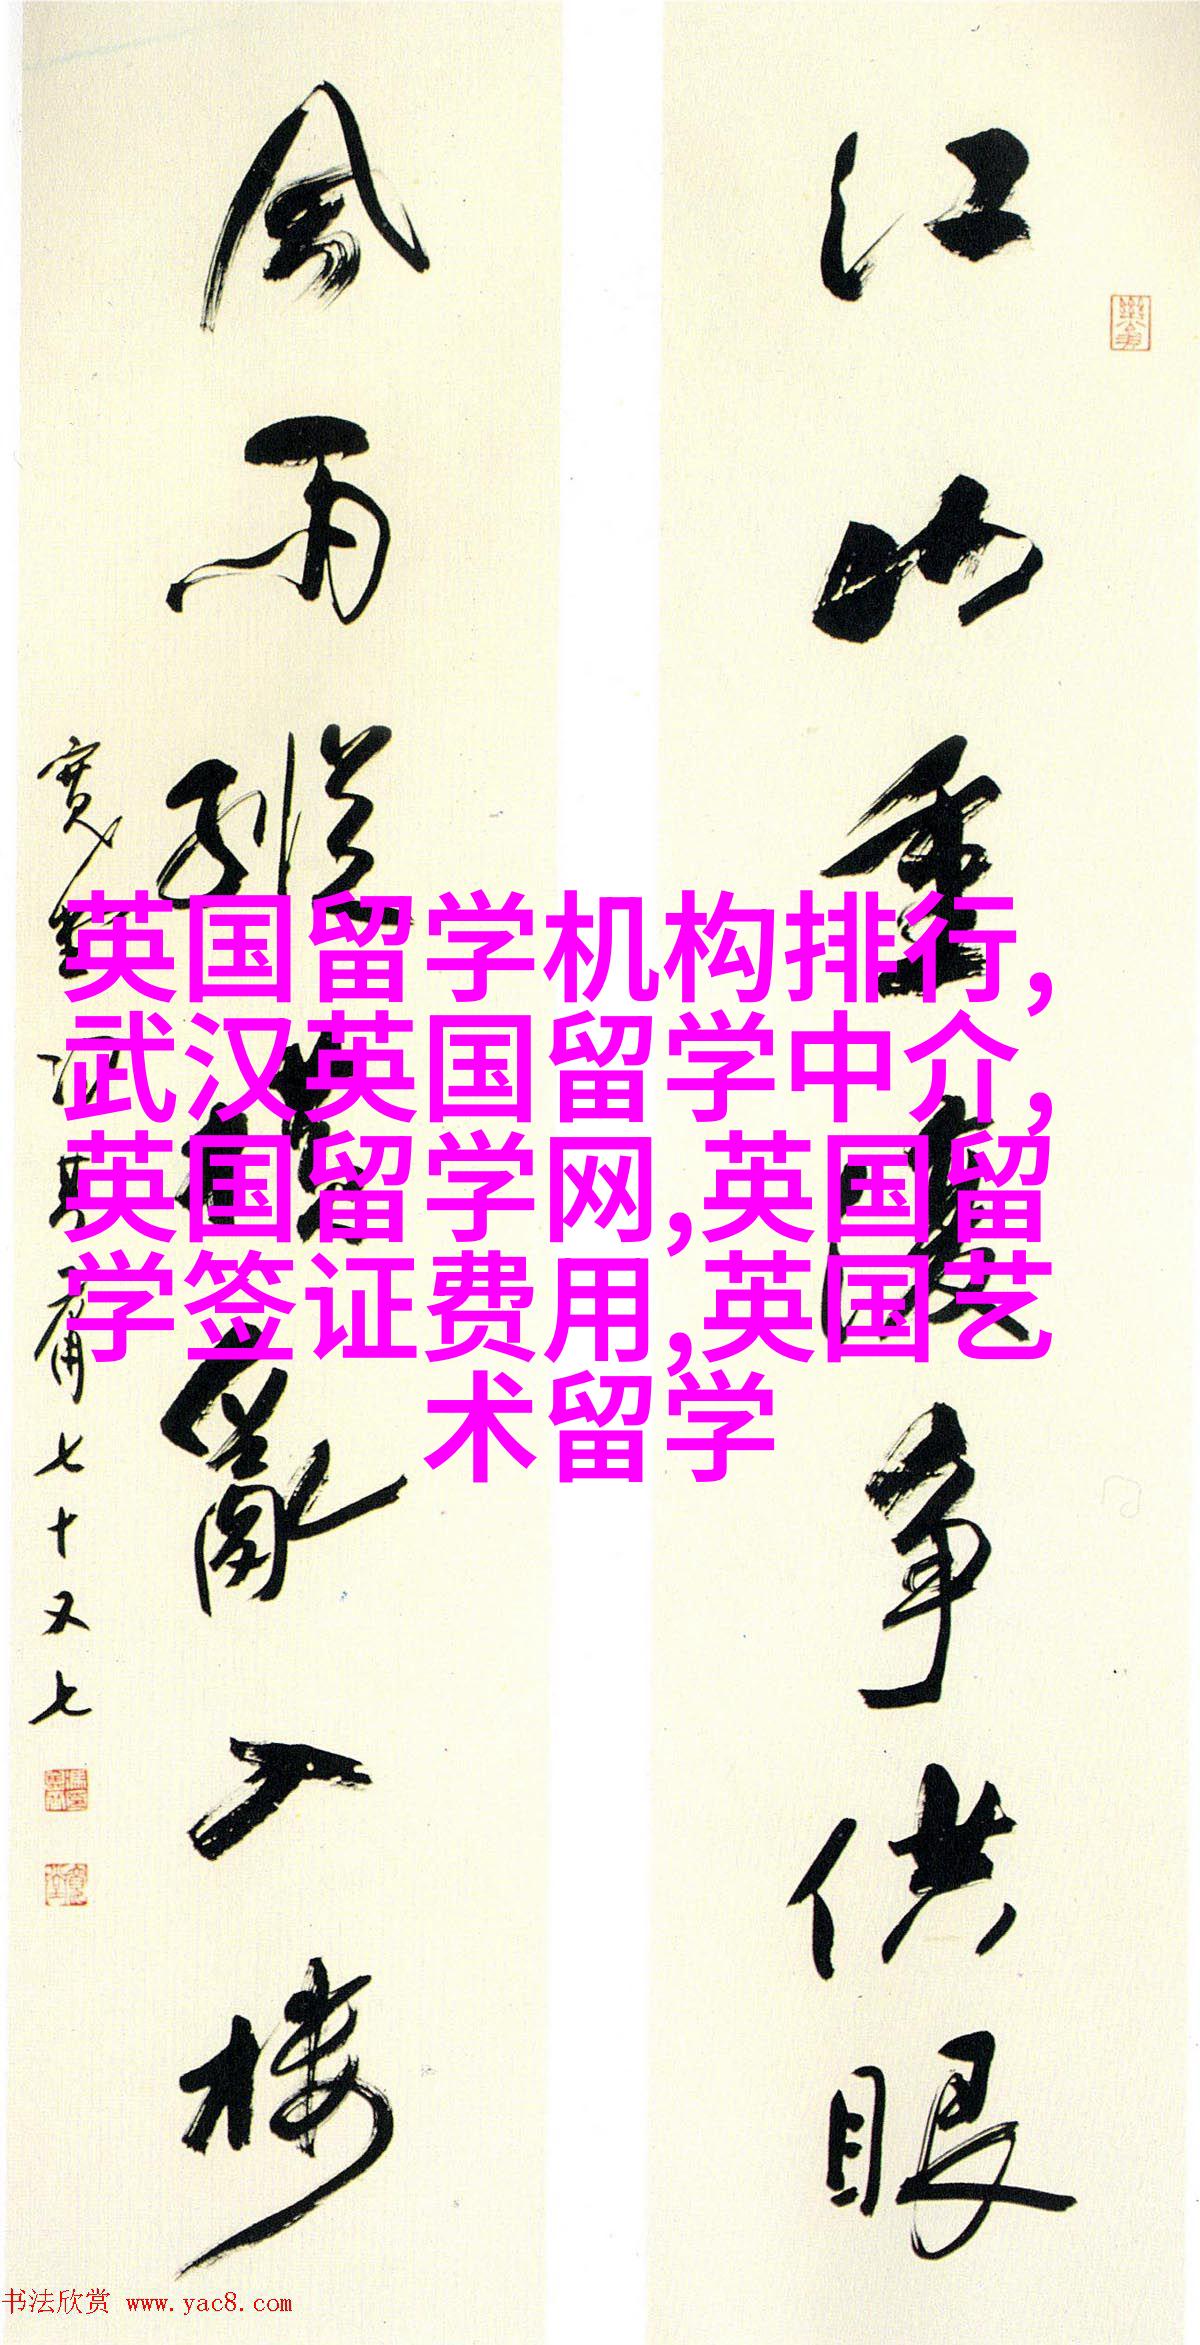 江山重复争供眼
风雨縱橫亂入楼
七十又七
英国留学机构排行,
武汉英国留学中介,
英国留学网,英国留
学签证费用,英国艺
术留学
书法欣赏 www.yac8.com